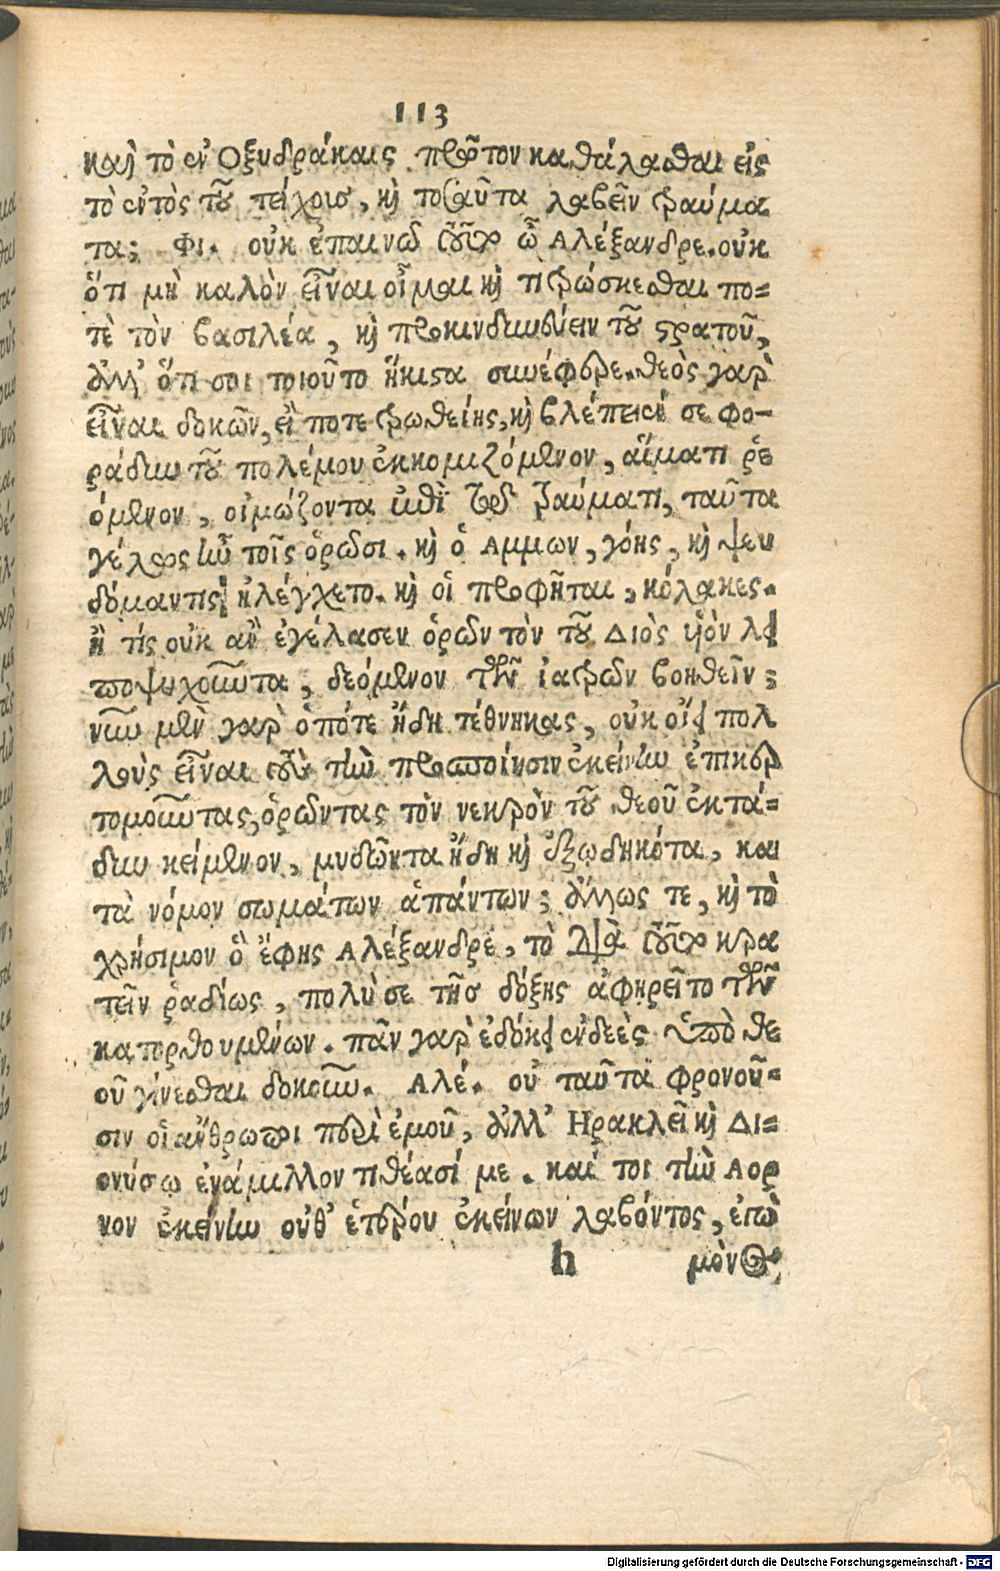 113
καὶ τὸ ἐν Ὀξυδράκαις πρῶτον καθάλασθαι εἰς
τὸ ἐντὸς τοῦ τείχους, καὶ τοσαῦτα λαβεῖν τραύμα
τα; Φι. οὐκ ἐπαινῶ τοῦτο ὦ Αλέξανδρε. οὐκ
ὅτι μὴ καλὸν εἶναι οἶμαι καὶ τιτρώσκεσθαι πο-
τὲ τὸν βασιλέα, καὶ προκινδυνεύειν τοῦ στρατοῦ,
ἀλλ' ὅτι σοι τοιοῦτο ἥκιστα συνέφερε. θεὸς γὰρ
εἶναι δοκῶν, εἴ ποτε τρωθείης, καὶ βλέπειέν σε φο-
ράδην τοῦ πολέμου ἐκκομιζόμενον, αἵματι ῥε
όμενον, οἰμώζοντα ἐπὶ τῷ τραύματι, ταῦτα
γέλως ἦν τοῖς ὁρῶσι. καὶ ὁ Αμμων, γόης, καὶ ψευ
δόμαντις ἠλέγχετο. καὶ οἱ προφῆται, κόλακες.
ἢ τίς οὐκ ἂν ἐγέλασεν ὁρῶν τὸν τοῦ Διὸς υἱὸν λει
ποψυχοῦντα, δεόμενον τῶν ἰατρῶν βοηθεῖν;
νῦν μὲν γὰρ ὁπότε ἤδη τέθνηκας, οὐκ οἴει πολ
λοὺς εἶναι τοὺς τὴν προσποίησιν ἐκείνην ἐπικερ
τομοῦντας, ὁρῶντας τὸν νεκρὸν τοῦ θεοῦ ἐκτά-
δην κείμενον, μυδῶντα ἤδη καὶ ἐξῳδηκότα, κατ
τὰ νόμον σωμάτων ἁπάντων; ἄλλως τε, καὶ τὸ
χρήσιμον ὃ ἔφης Αλέξανδρε, τὸ διὰ τοῦτο κρα
τεῖν ῥαδίως, πολύ σε τῆς δόξης ἀφῃρεῖτο τῶν
κατορθουμένων. πᾶν γὰρ ἐδόκει ἐνδεὲς ὑπὸ θε
οῦ γίνεσθαι δοκοῦν. Αλέ. οὐ ταῦτα φρονοῦ-
σιν οἱ ἄνθρωποι περὶ ἐμοῦ, ἀλλ' Ηρακλεῖ καὶ Δι-
ονύσῳ ἐνάμιλλον τιθέασί με. καί τοι τὴν Αορ
νον ἐκείνην οὐθ' ἑτέρου ἐκείνων λαβόντος, ἐγὼ
h μόνος
Digitalisierung gefördert durch die Deutsche Forschungsgemeinschaft - DFG